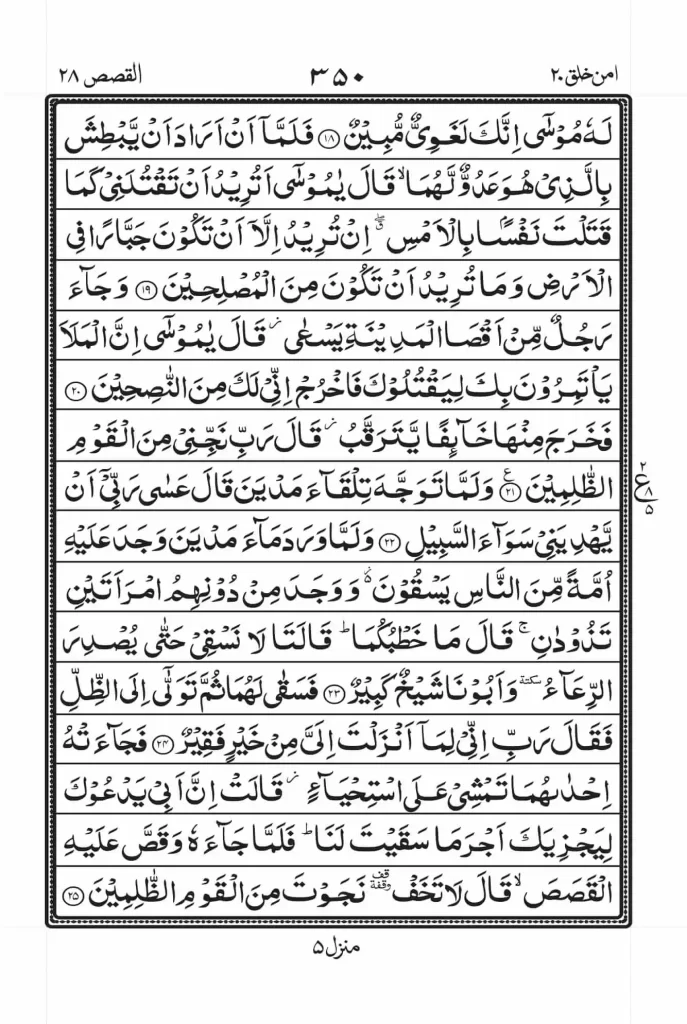 امن خلق ۲۰ ۳۵۰ القصص ۲۸
لَهٗ مُوْسٰۤى اِنَّكَ لَغَوِىٌّ مُّبِيْنٌ ﴿۱۸﴾ فَلَمَّاۤ اَنْ اَرَادَ اَنْ يَّبْطِشَ
بِالَّذِىْ هُوَ عَدُوٌّ لَّهُمَا ۙ قَالَ يٰمُوْسٰۤى اَتُرِيْدُ اَنْ تَقْتُلَنِىْ كَمَا
قَتَلْتَ نَفْسًۢا بِالْاَمْسِ ۖ ۗ اِنْ تُرِيْدُ اِلَّاۤ اَنْ تَكُوْنَ جَبَّارًا فِى
الْاَرْضِ وَمَا تُرِيْدُ اَنْ تَكُوْنَ مِنَ الْمُصْلِحِيْنَ ﴿۱۹﴾ وَجَآءَ
رَجُلٌ مِّنْ اَقْصَا الْمَدِيْنَةِ يَسْعٰى ۫ قَالَ يٰمُوْسٰۤى اِنَّ الْمَلَاَ
يَاْتَمِرُوْنَ بِكَ لِيَقْتُلُوْكَ فَاخْرُجْ اِنِّىْ لَكَ مِنَ النّٰصِحِيْنَ ﴿۲۰﴾
فَخَرَجَ مِنْهَا خَآئِفًا يَّتَرَقَّبُ ۫ قَالَ رَبِّ نَجِّنِىْ مِنَ الْقَوْمِ
الظّٰلِمِيْنَ ﴿۲۱﴾ ع وَلَمَّا تَوَجَّهَ تِلْقَآءَ مَدْيَنَ قَالَ عَسٰى رَبِّىْۤ اَنْ
۲ ع ۸ ۵
يَّهْدِيَنِىْ سَوَآءَ السَّبِيْلِ ﴿۲۲﴾ وَلَمَّا وَرَدَ مَآءَ مَدْيَنَ وَجَدَ عَلَيْهِ
اُمَّةً مِّنَ النَّاسِ يَسْقُوْنَ ۬ وَوَجَدَ مِنْ دُوْنِهِمُ امْرَاَتَيْنِ
تَذُوْدٰنِ ۚ قَالَ مَا خَطْبُكُمَا ؕ قَالَتَا لَا نَسْقِىْ حَتّٰى يُصْدِرَ
الرِّعَآءُ سكتة وَاَبُوْنَا شَيْخٌ كَبِيْرٌ ﴿۲۳﴾ فَسَقٰى لَهُمَا ثُمَّ تَوَلّٰۤى اِلَى الظِّلِّ
فَقَالَ رَبِّ اِنِّىْ لِمَاۤ اَنْزَلْتَ اِلَىَّ مِنْ خَيْرٍ فَقِيْرٌ ﴿۲۴﴾ فَجَآءَتْهُ
اِحْدٰىهُمَا تَمْشِىْ عَلَى اسْتِحْيَآءٍ ۫ قَالَتْ اِنَّ اَبِىْ يَدْعُوْكَ
لِيَجْزِيَكَ اَجْرَ مَا سَقَيْتَ لَنَا ؕ فَلَمَّا جَآءَهٗ وَقَصَّ عَلَيْهِ
الْقَصَصَ ۙ قَالَ لَا تَخَفْ قف وقفة نَجَوْتَ مِنَ الْقَوْمِ الظّٰلِمِيْنَ ﴿۲۵﴾
منزل ۵